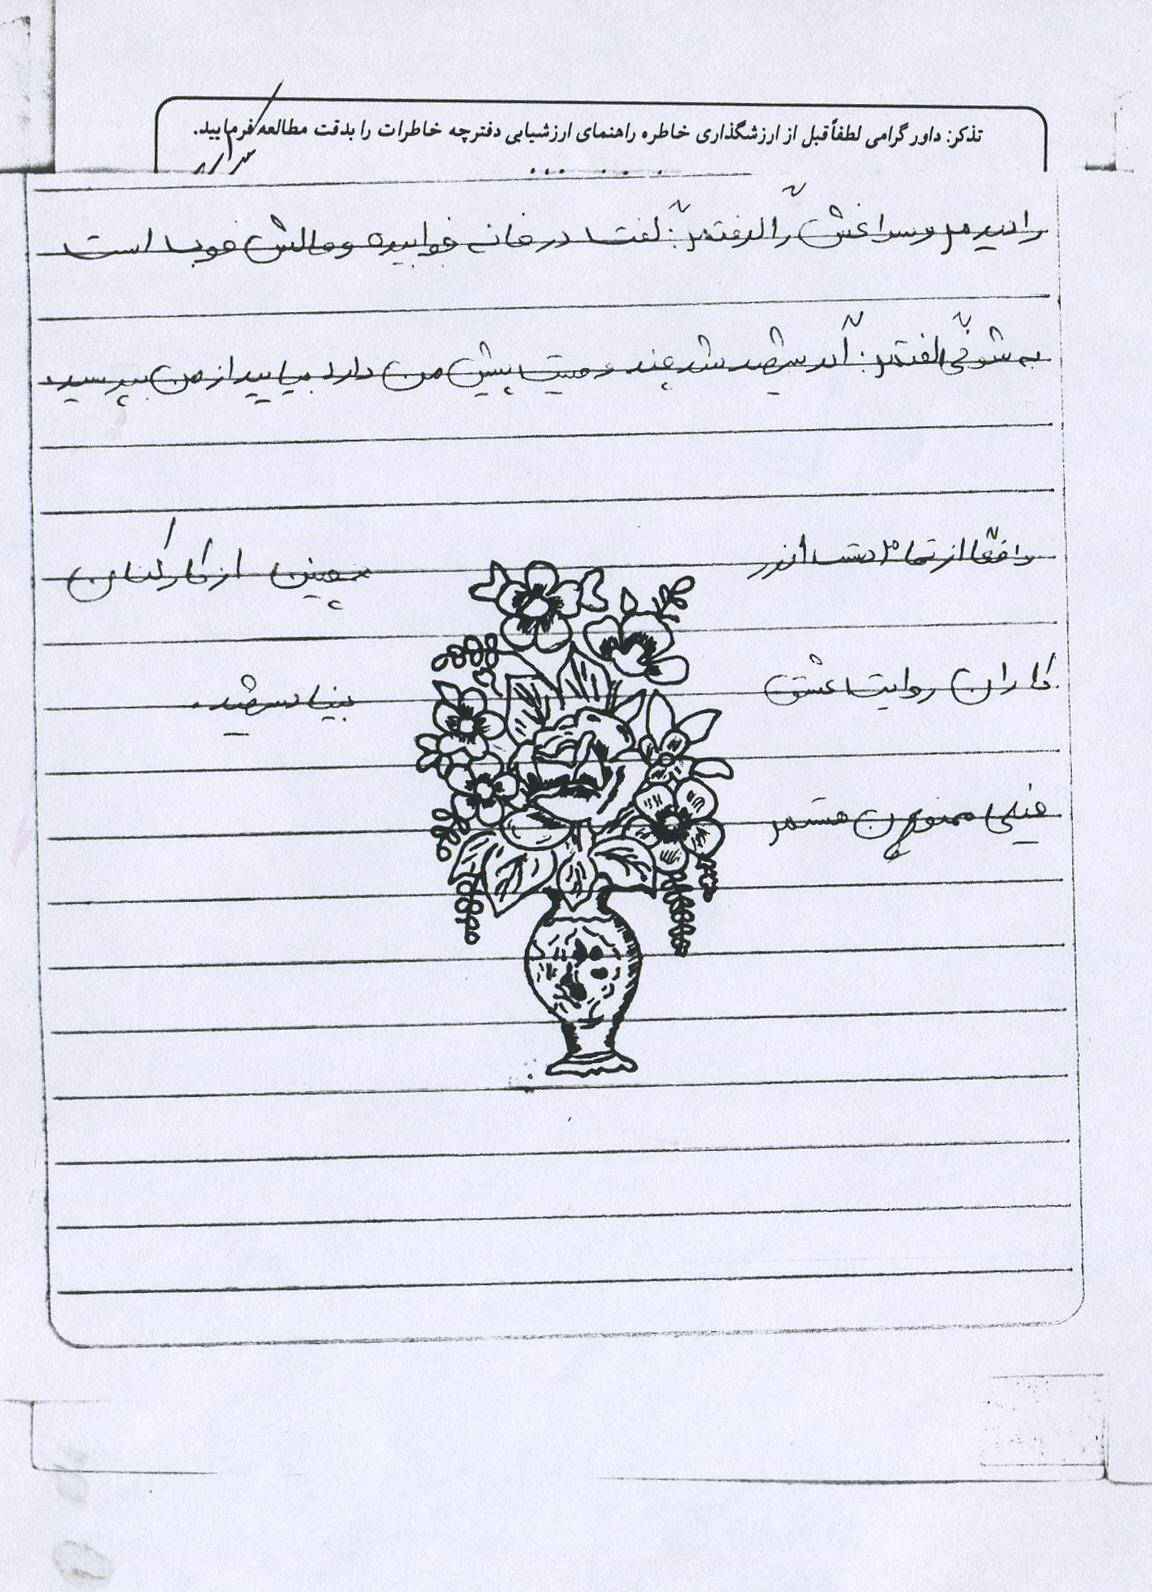 تذکر: داور گرامی لطفاً قبل از ارزشگذاری خاطره راهنمای ارزشیابی دفترچه خاطرات را بدقت مطالعه فرمایید.
را دیدم و سراغش را گرفتم: گفت در خانه خوابیده و حالش خوب است
به شوخی گفتم: اگر شهید شد چند وصیت پیش من دارد بیایید از من بپرسید
واقعا از تمام دست اندر
همچنین از کارکنان
کاران روایت عشق
بنیاد شهید.
خیلی ممنون هستم